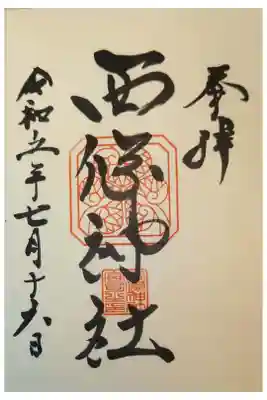 奉拝
西神社
令和五年七月十六日